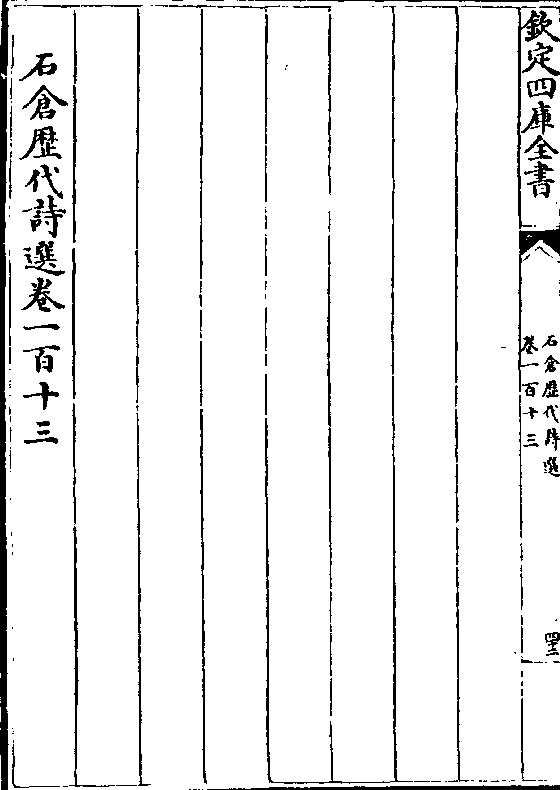 欽定四庫全書
石倉歴代詩選
卷一百十三
四十二
石倉歴代詩選卷一百十三